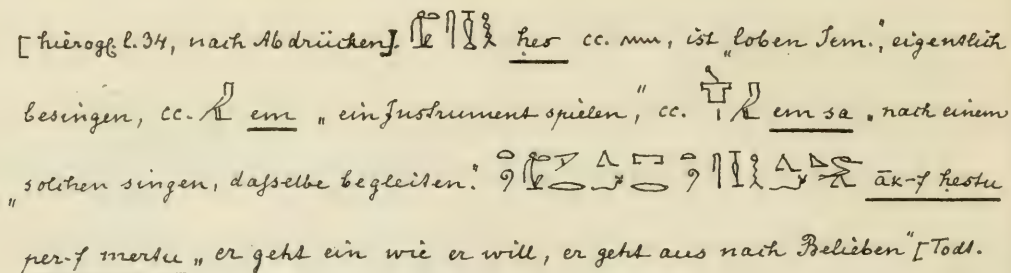 [hierogl. l. 34, nach Abdrücken]. hes cc. mm, ist „loben Jem.", eigenslich
besingen, cc. em „ein Instrument spielen", cc. em sa „nach einem
„solchen singen, daſselbe begleiten." āk-f hestu
per-f mertu „er geht ein wie er will, er geht aus nach Belieben" [Todt.